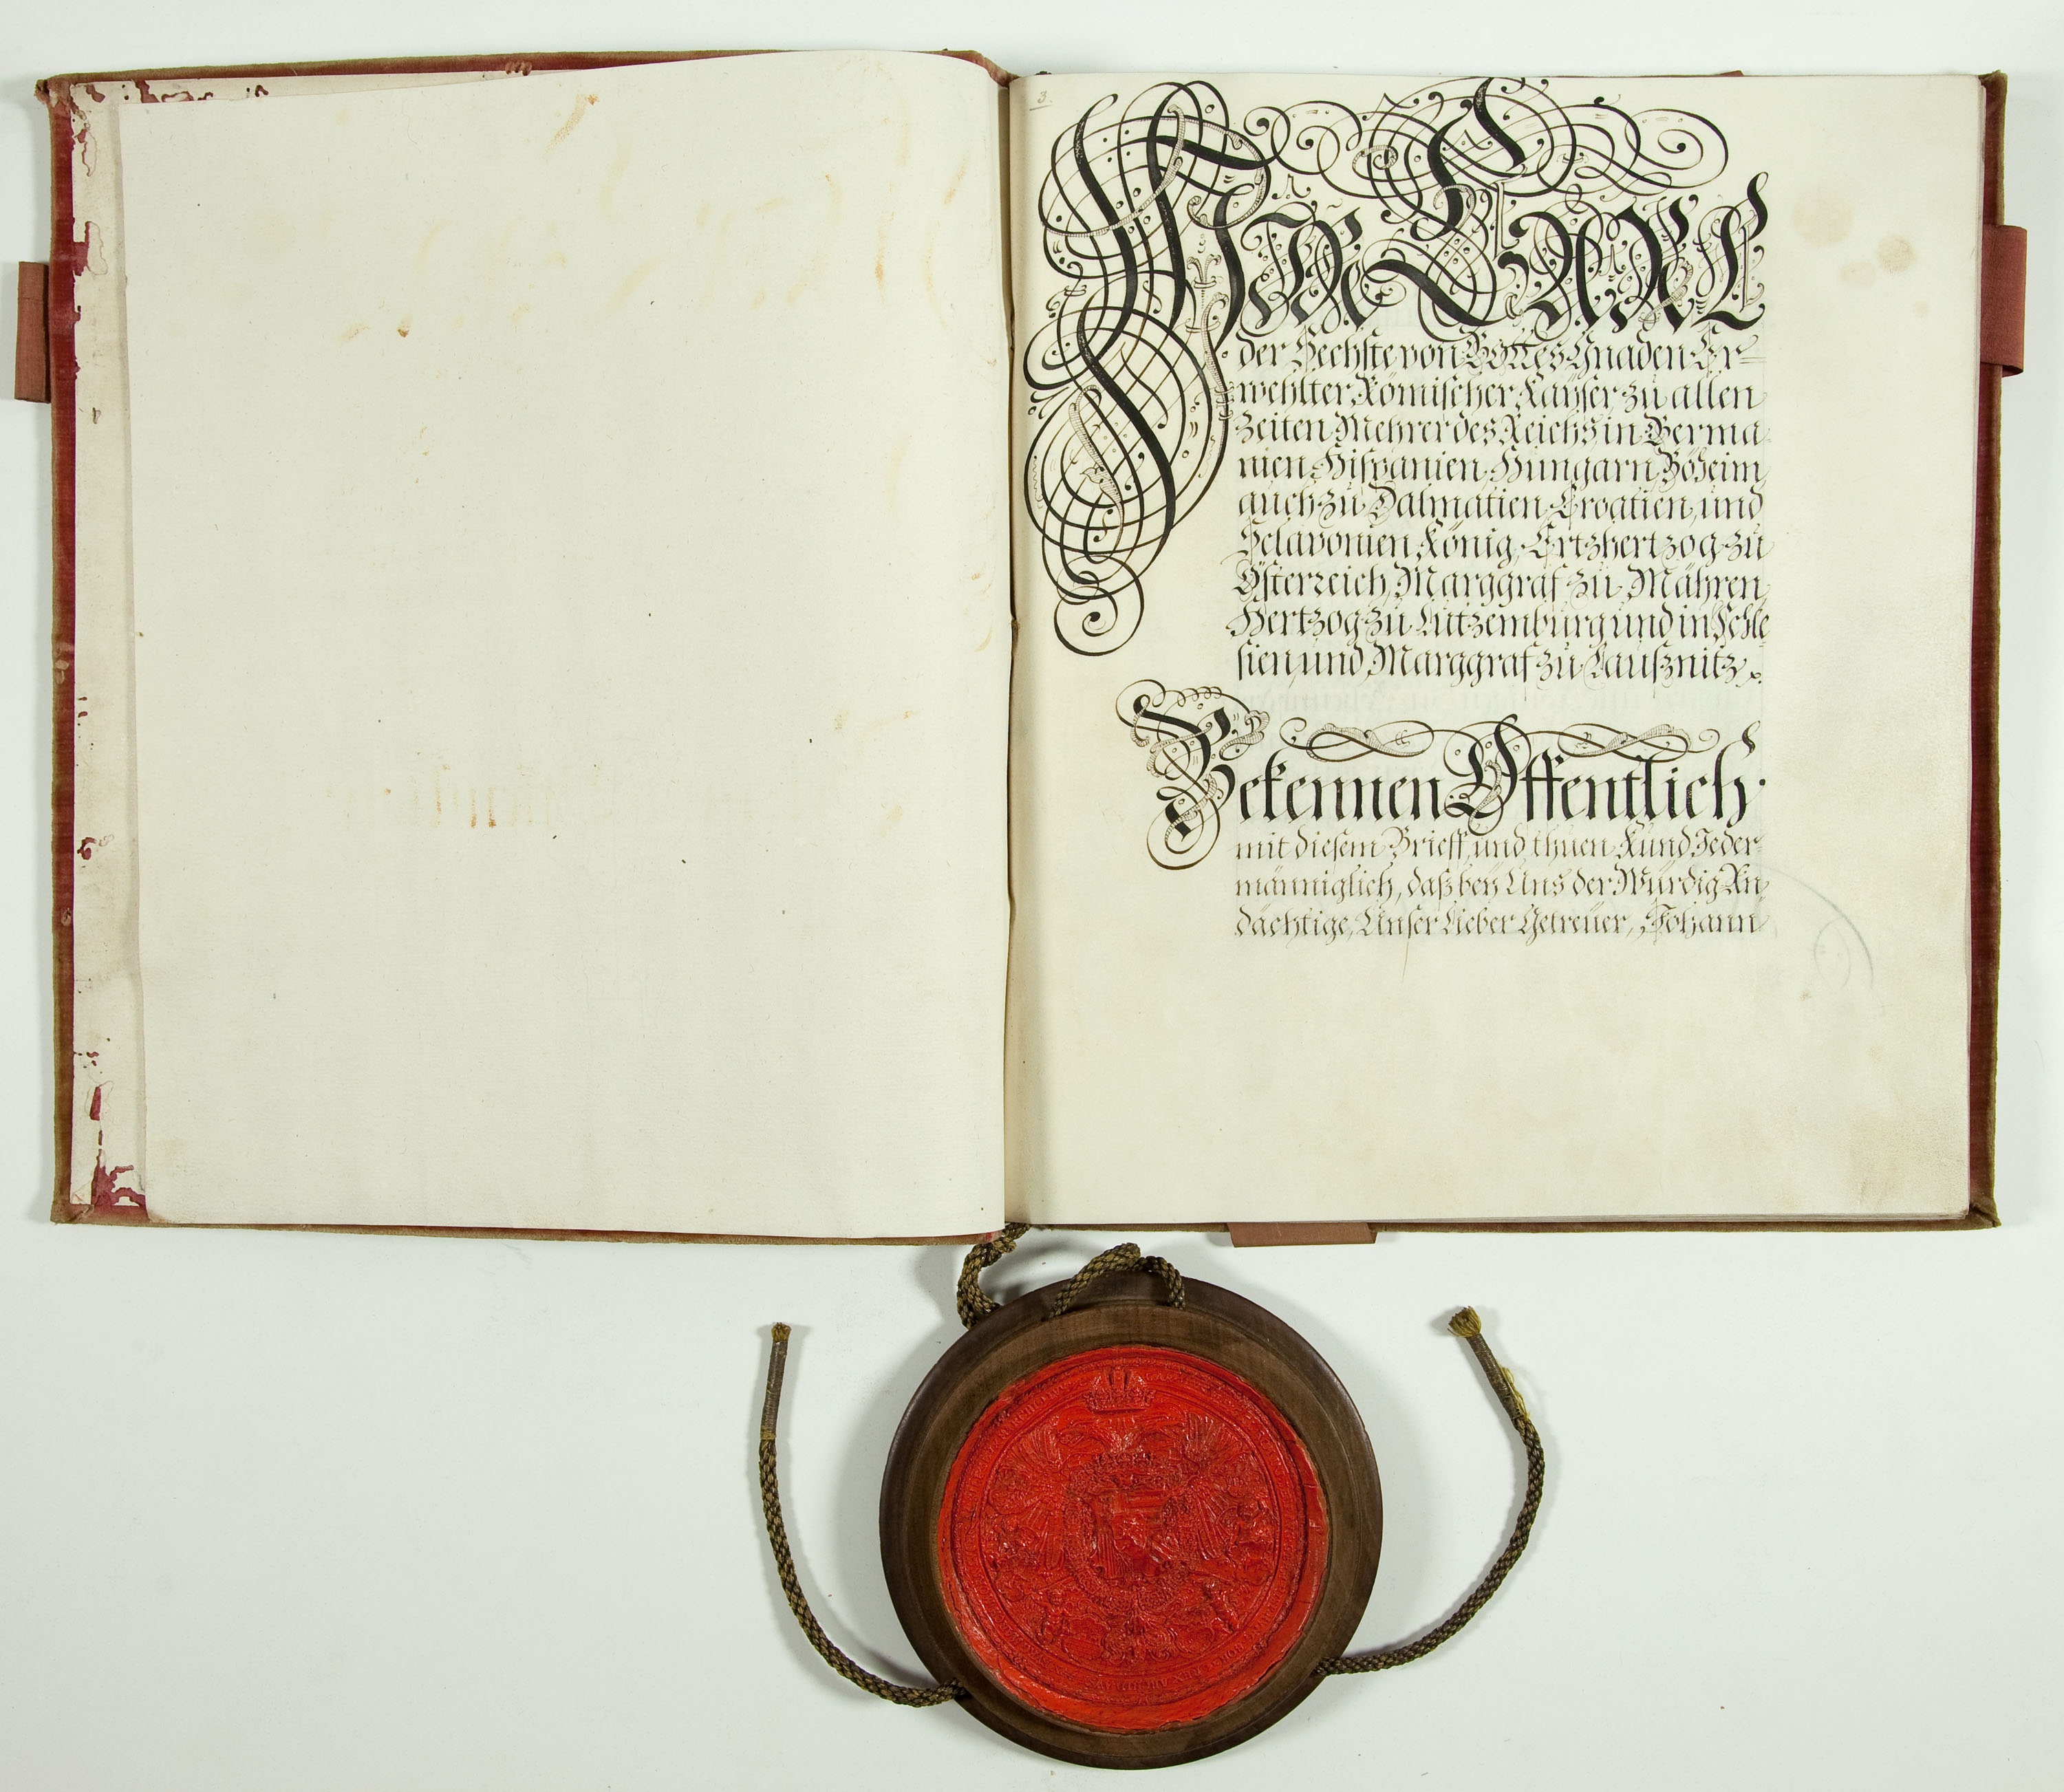 3.
Wir Carl
der Sechste von Gottes Gnaden Er=
wehlter Römischer Kayser, zu allen
Zeiten Mehrer des Reichs in Germa
nien, Hispanien, Hungarn, Böheim,
auch zu Dalmatien, Croatien, und
Sclavonien König, Ertzhertzog zu
Österreich, Marggraf zu Mähren,
Hertzog zu Lutzemburg und in Schle
sien und Marggraf zu Laußnitz
Bekennen Öffentlich
mit diesem Brieff, und thuen Kund Jeder
männiglich, daß bey Uns der Würdig An
dächtige, Unser Lieber Getreüer, Johann